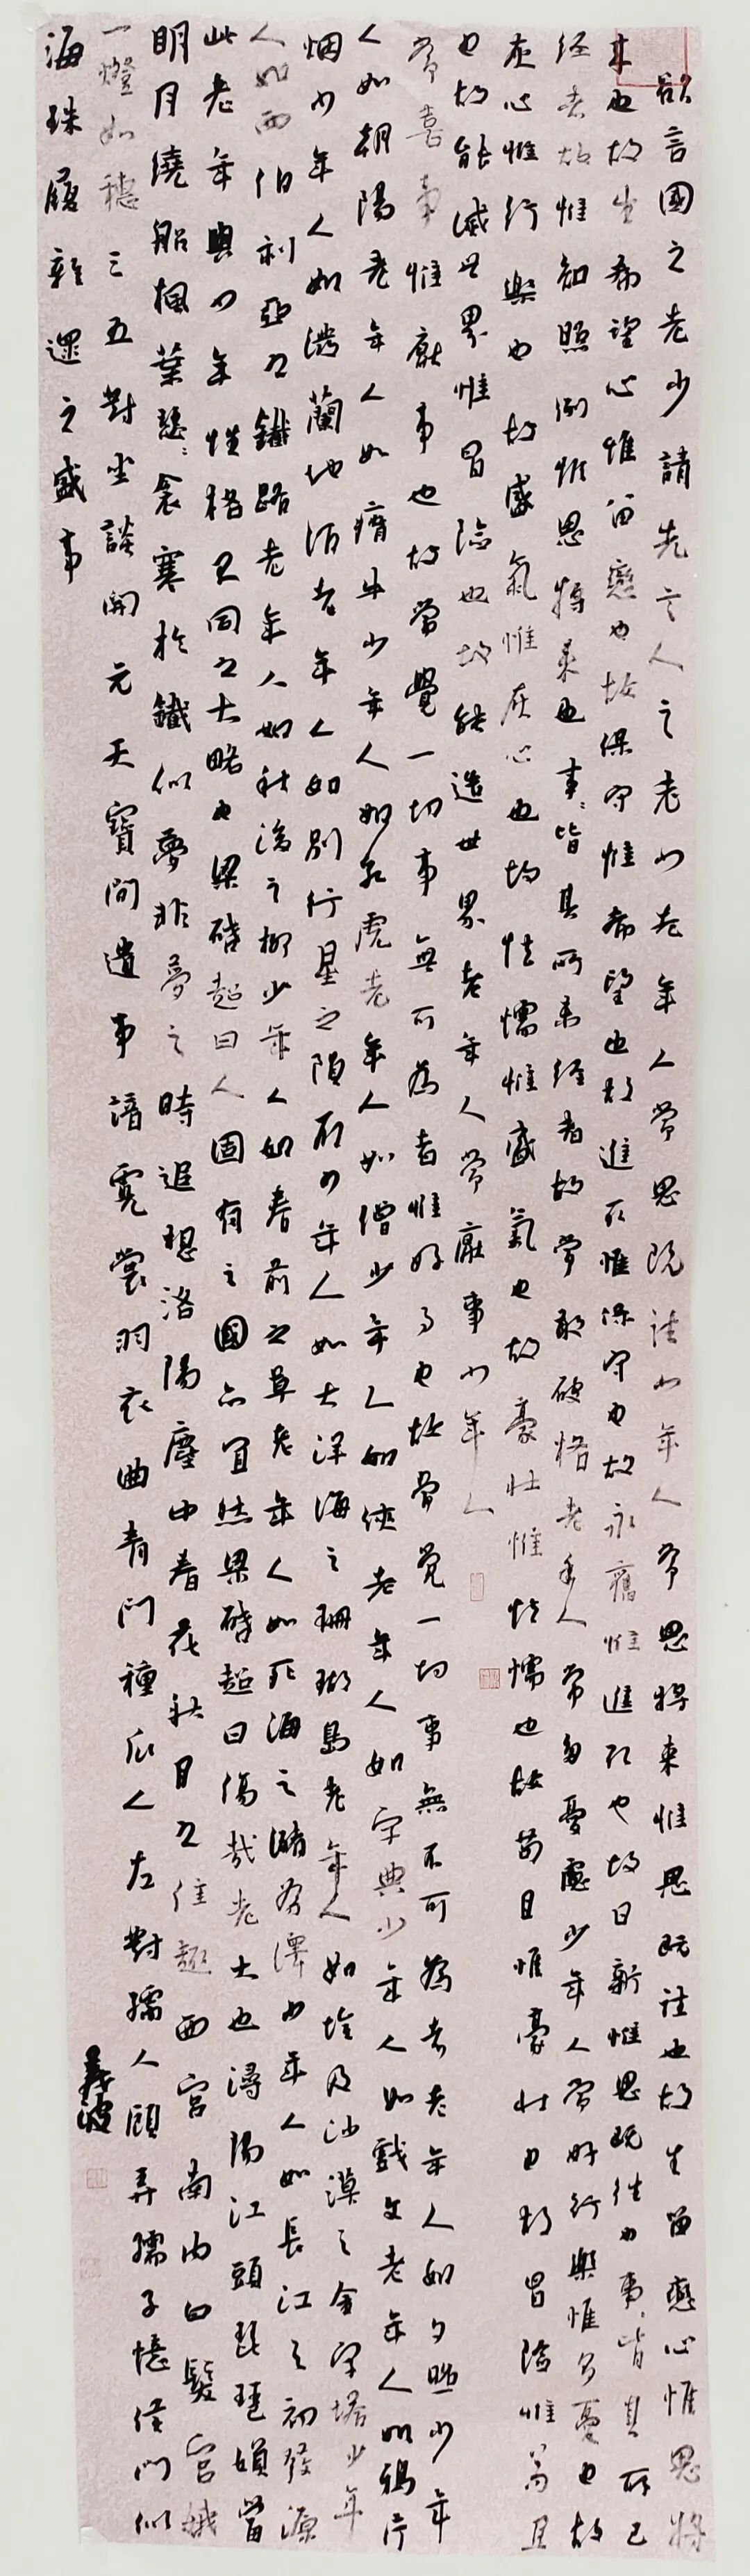 欲言國之老少請先言人之老少老年人常思既往少年人常思將來惟思既往也故生留戀心惟思將
來也故生希望心惟留戀也故保守惟希望也故進取惟保守也故永舊惟進取也故日新惟思既往也事事皆其所已
經者故惟知照例惟思將來也事事皆其所未經者故常敢破格老年人常多憂慮少年人常好行樂惟多憂也故
灰心惟行樂也故盛氣惟灰心也故怯懦惟盛氣也故豪壯惟怯懦也故苟且惟豪壯也故冒險惟苟且
也故能滅世界惟冒險也故能造世界老年人常厭事少年人
常喜事惟厭事也故常覺一切事無可為者惟好事也故常覺一切事無不可為者老年人如夕照少年
人如朝陽老年人如瘠牛少年人如乳虎老年人如僧少年人如俠老年人如字典少年人如戲文老年人如鴉片
烟少年人如潑蘭地酒老年人如別行星之隕石少年人如大洋海之珊瑚島老年人如埃及沙漠之金字塔少年
人如西伯利亞之鐵路老年人如秋後之柳少年人如春前之草老年人如死海之瀦為澤少年人如長江之初發源
此老年與少年性格不同之大略也梁啓超曰人固有之國亦宜然梁啓超曰傷哉老大也潯陽江頭琵琶婦當
明月繞船楓葉瑟瑟衾寒於鐵似夢非夢之時追想洛陽塵中春花秋月之佳趣西宮南內白髮宮娥
一燈如穗三五對坐談開元天寶間遺事譜霓裳羽衣曲青門種瓜人左對孺人顧弄孺子憶侯門似
海珠履雜遝之盛事
義波